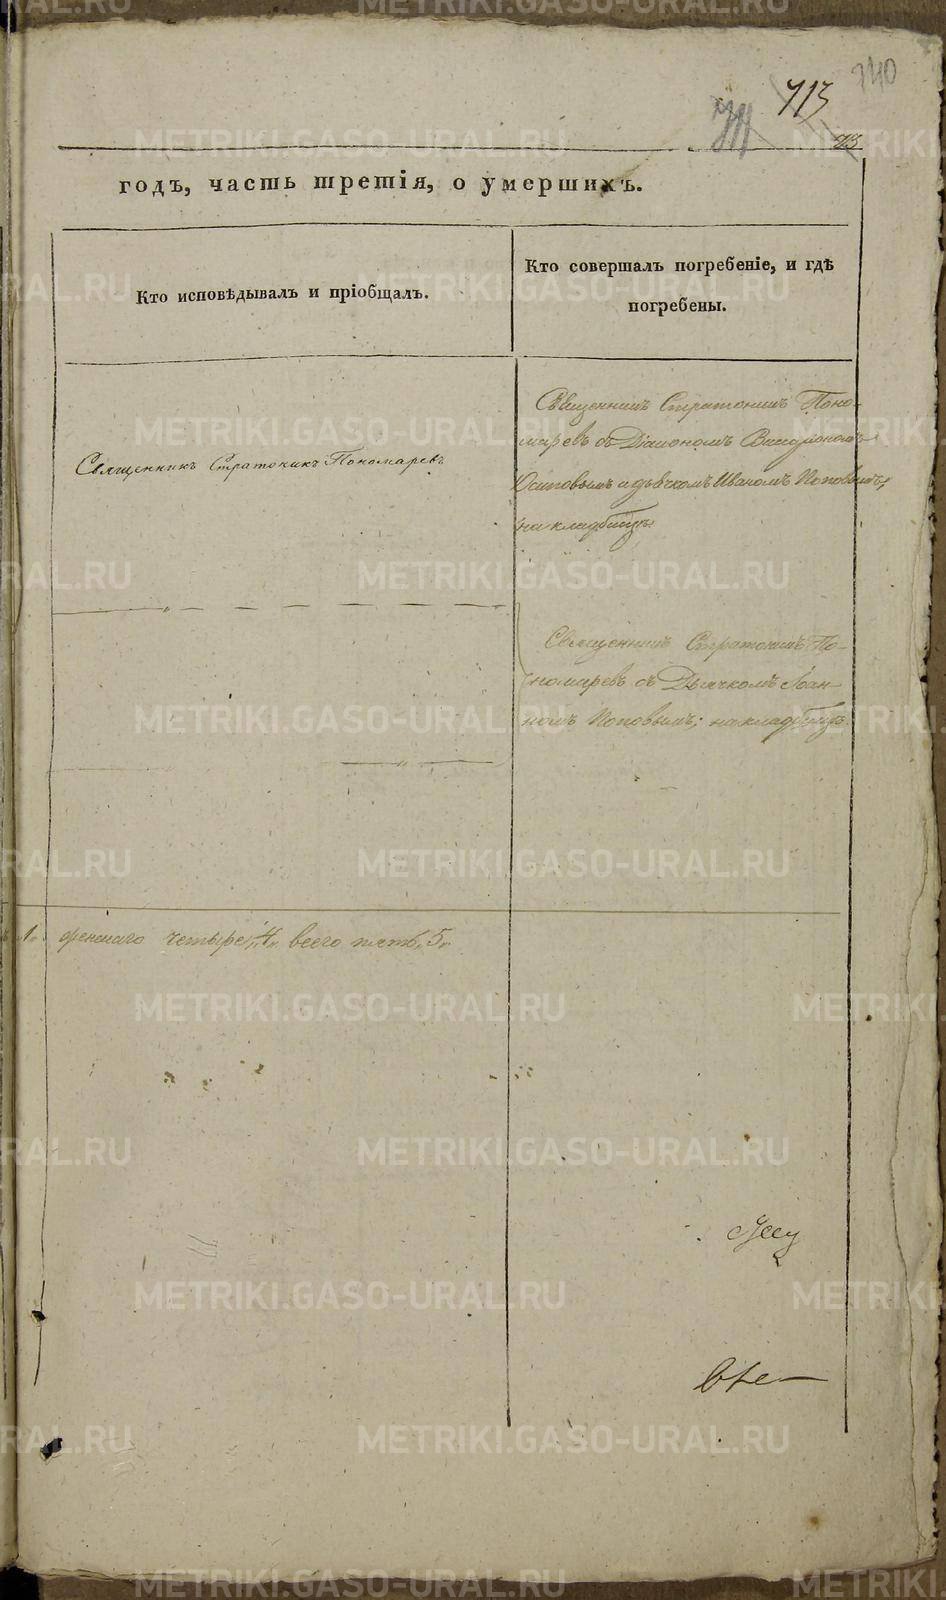 740
713
годъ, часть третія, о умершихъ.
Кто исповѣдывалъ и пріобщалъ.
Кто совершалъ погребеніе, и гдѣ
погребены.
Священникъ Стратоникъ Пономаревъ
Священникъ Стратоникъ Поно-
маревъ съ Діакономъ
Осиповымъ и дьячкомъ Иваномъ Поповымъ,
на кладбищѣ
Священникъ Стратоникъ По-
номаревъ съ Дьячкомъ Іоан-
номъ Поповымъ; на кладбищѣ
1. женскаго четыре "4" всего пять "5"
METRIKI.GASO-URAL.RU